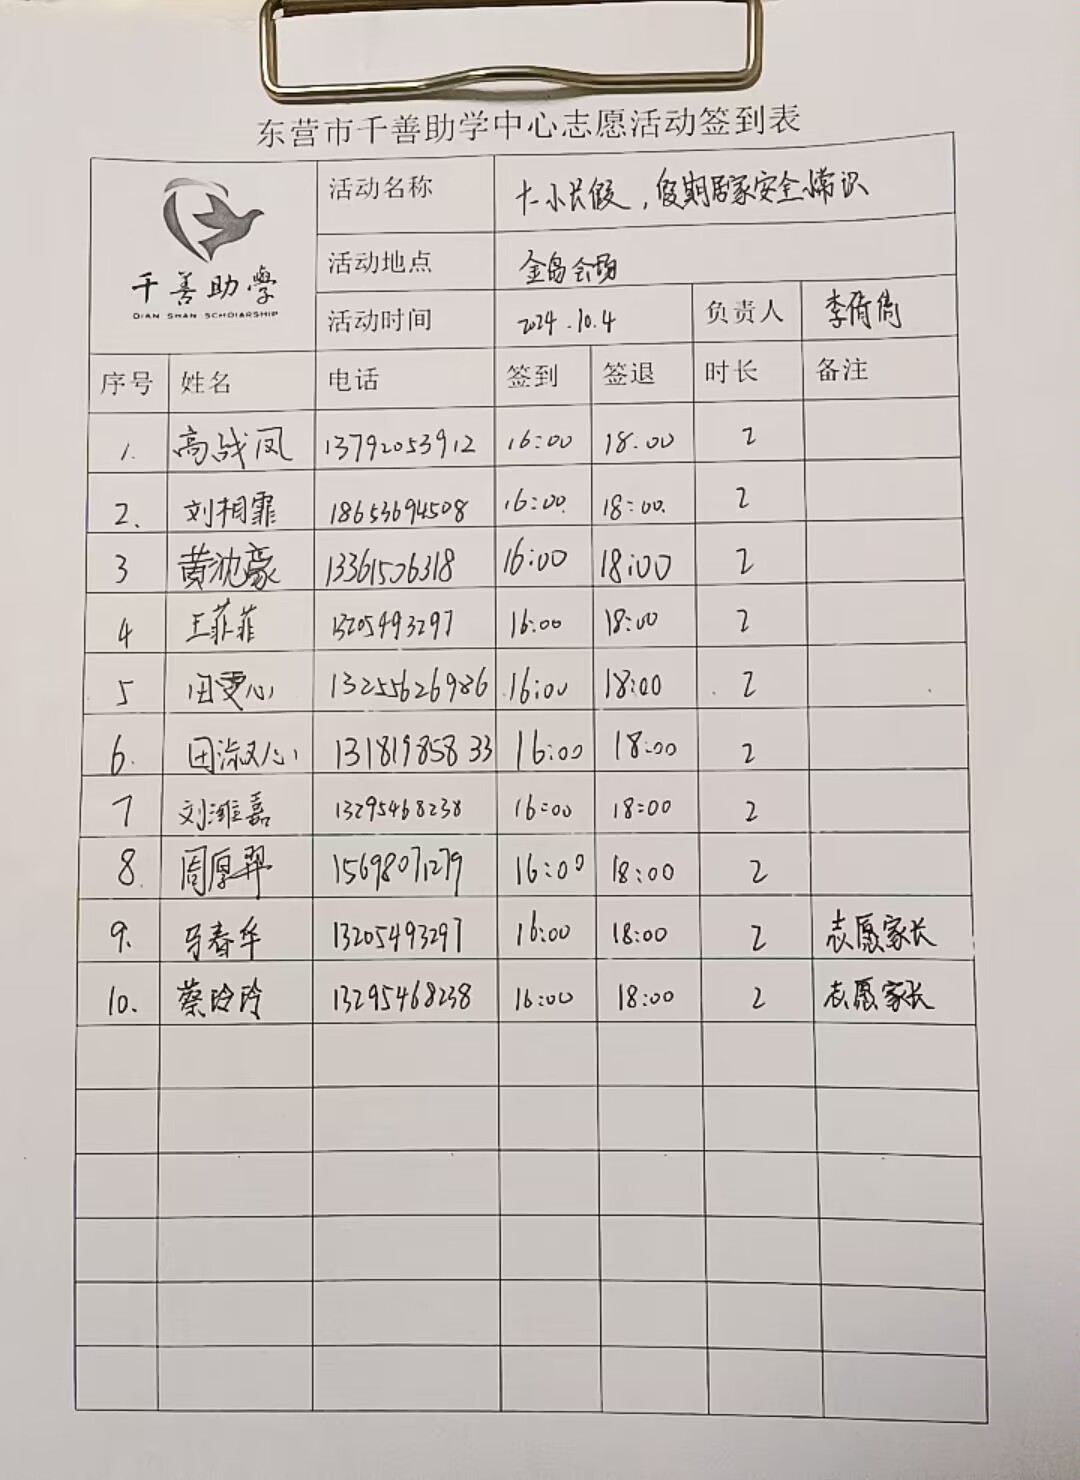 东营市千善助学中心志愿活动签到表
千善助學
QIAN SHAN SCHOIARSHIP
活动名称 十一小长假，假期居家安全常识
活动地点 金岛会场
活动时间 2024.10.4 负责人 李倩倩
序号 姓名 电话 签到 签退 时长 备注
1. 高战凤 13792053912 16:00 18:00 2
2. 刘相霏 18653694508 16:00. 18:00. 2
3 黄沈豪 13361506318 16:00 18:00 2
4 王菲菲 13205493297 16:00 18:00 2
5 田雯心 13255626986 16:00 18:00 2
6. 田淑心 13181985833 16:00 18:00 2
7 刘潍嘉 13295468238 16:00 18:00 2
8. 周厚羿 15698071279 16:00 18:00 2
9. 马春年 13205493297 16:00 18:00 2 志愿家长
10. 蔡玲玲 13295468238 16:00 18:00 2 志愿家长